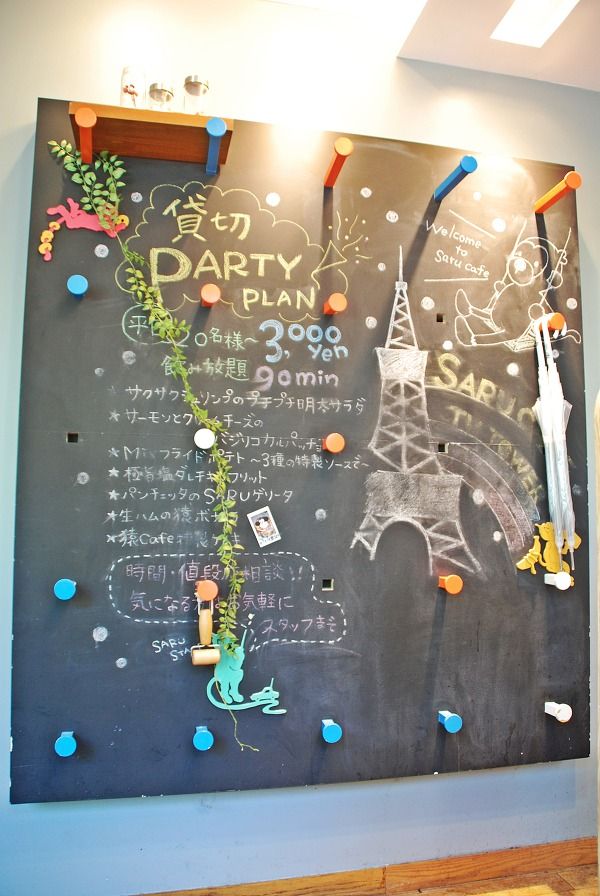 貸切
PARTY
PLAN
Welcome to
Saru cafe
20名様〜 3,000 yen
飲み放題 90min
サクサクシュリンプのプチプチ明太サラダ
★サーモンとクリームチーズの
バジリコカルパッチョ
★フライドポテト〜3種の特製ソースで〜
★極旨塩ダレチキンフリット
★パンチェッタのSARUゲリータ
★生ハムの猿ポ
★猿Cafe特製
時間・値段 相談!!
気になる方はお気軽に
スタッフまで
SARU
SARU
TV TOWER